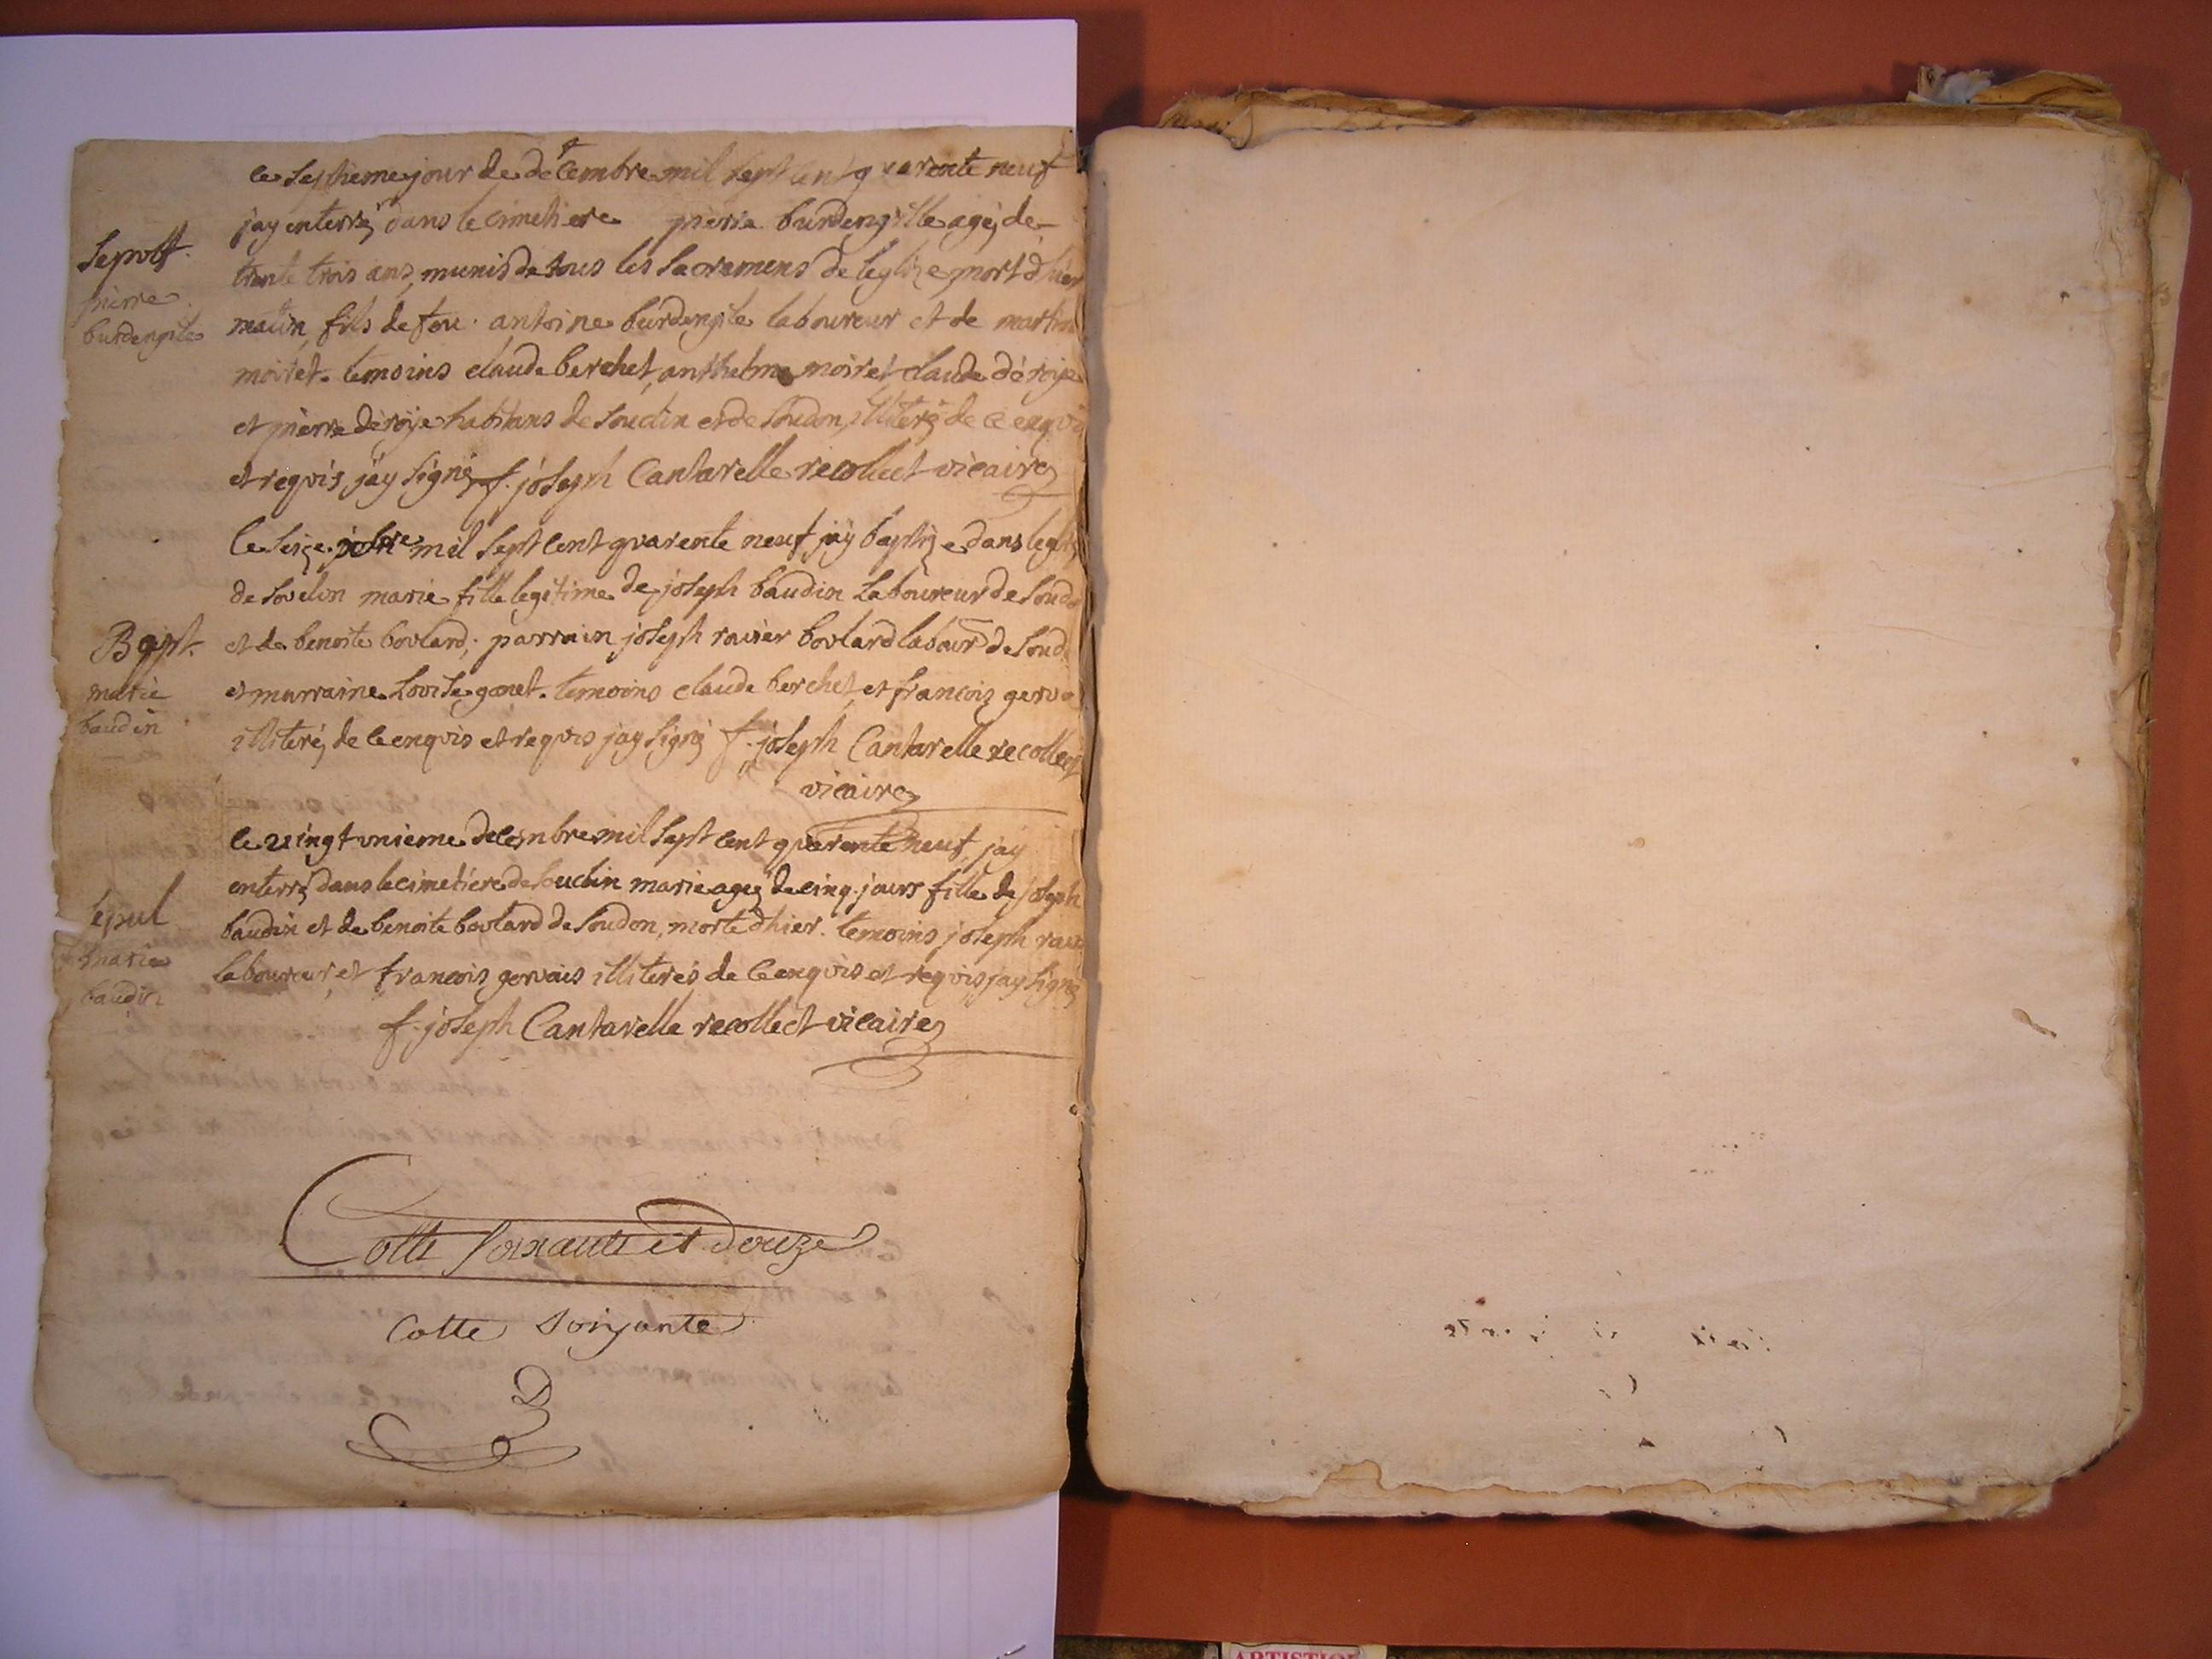 le septiéme jour de décembre mil sept cent quarente neuf
jay enterré dans le cimetiere pierre burdengille agé de
Sepult.
trente trois ans, munis de tous les sacremens de leglize mort d'hier
pierre
matin, fils de feu antoine burdengile laboureur et de
burdengile
moiret. temoins claude berchet, anthelme moiret claude déroije
et pierre déroije habitans de Souclin et de Soudon, illiteré de ce enquis
et requis, jay signé f. joseph Cantarelle recollect vicaire
le seize mil sept cent quarente neuf jay baptize dans
de Souclin marie fille legitime de joseph baudin Laboureur de
Bapt.
et de benoite boulard; parrain joseph ravier boulard labour de
marie
et marraine Louise gonet. temoins claude berchet, et francois
baudin
illiteré, de ce enquis et requis jay signé f. joseph Cantarelle recollect
vicaire
le vingt unieme decembre mil sept cent quarente neuf, jay
enterré dans le cimetiere de Souclin marie ageé de cinq jours fille de joseph
sepul
baudin et de benoite boulard de Soudon, morte d'hier. temoins joseph
marie
laboureur, et francois gervais illiterés, de ce enquis et requis jay signé
baudin
f. joseph Cantarelle recollect vicaire
Cotte soixante et douze
Cotte Soixante
ARTISTIQUE